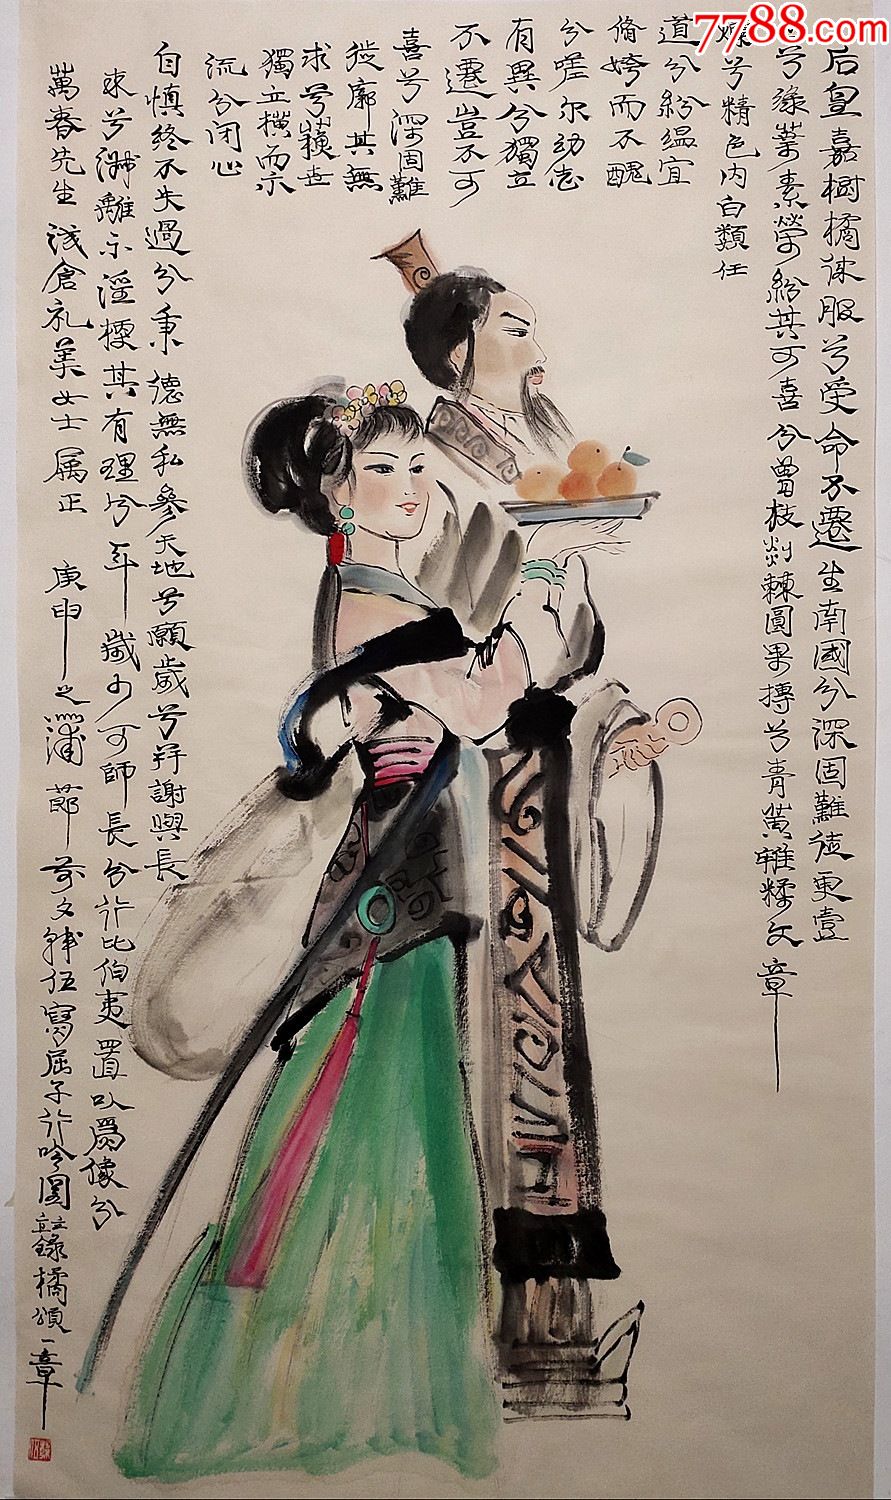 7788.com
后皇嘉樹橘徠服兮受命不遷生南國兮深固難徙更壹
志兮綠葉素榮紛其可喜兮曾枝剡棘圓果摶兮青黃雜糅文章
爛兮精色内白類任
道兮紛緼宜
脩姱而不醜
兮嗟尔幼志
有異兮獨立
不遷豈不可
喜兮深固難
徙廓其無
求兮蘇世
獨立橫而不
流兮閉心
自慎終不失過兮秉德無私參天地兮願歲兮并謝與長
友兮淑離不淫梗其有理兮年歲少可師長兮行比伯夷置以為像兮
萬春先生浅倉礼美女士属正 庚申之蒲節前夕韩伍寫屈子行吟圖並錄橘頌一章